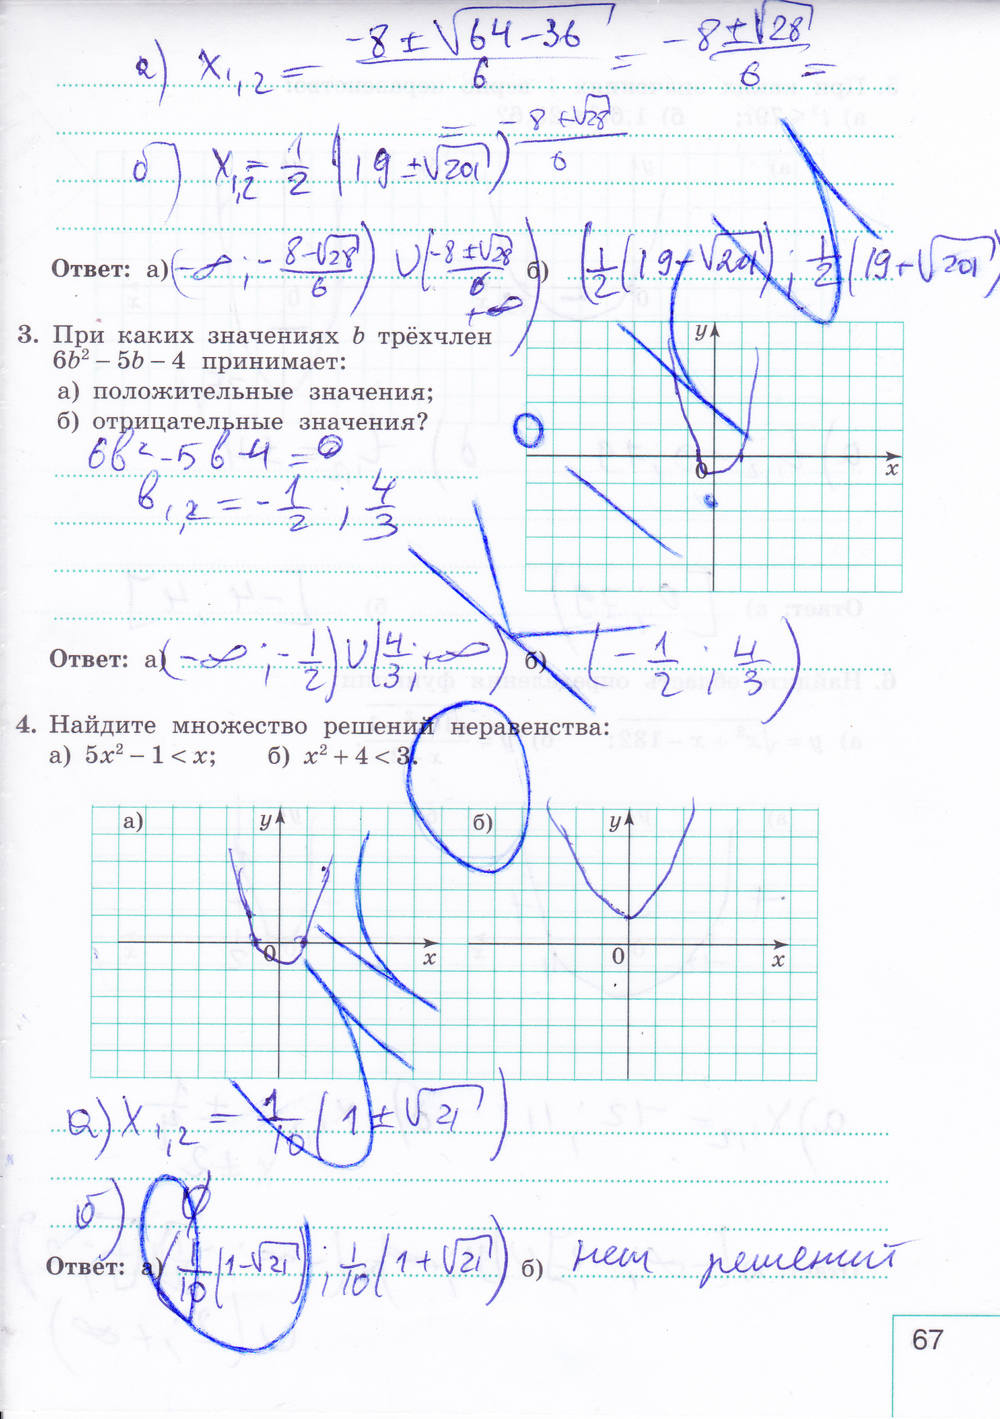 а) x₁,₂ = (-8 ± √(64 - 36))/6 = (-8 ± √28)/6 =
= (8 + √28)/6
б) x₁,₂ = 1/2 (19 ± √201)
Ответ: а) (-∞; -(8-√28)/6) ∪ ((-8±√28)/6; +∞) б) (1/2(19-√201); 1/2(19+√201)
3. При каких значениях b трёхчлен
6b² – 5b – 4 принимает:
а) положительные значения;
б) отрицательные значения?
6в² - 5в - 4 = 0
в₁,₂ = -1/2 ; 4/3
y
0
x
Ответ: а) (-∞; -1/2) ∪ (4/3; +∞) б) (-1/2; 4/3)
4. Найдите множество решений неравенства:
а) 5x² – 1 < x; б) x² + 4 < 3.
а) y б) y
0 x 0 x
а) x₁,₂ = 1/10 (1 ± √21)
б) ∅
Ответ: а) (1/10(1-√21); 1/10(1+√21)) б) нет решений
67